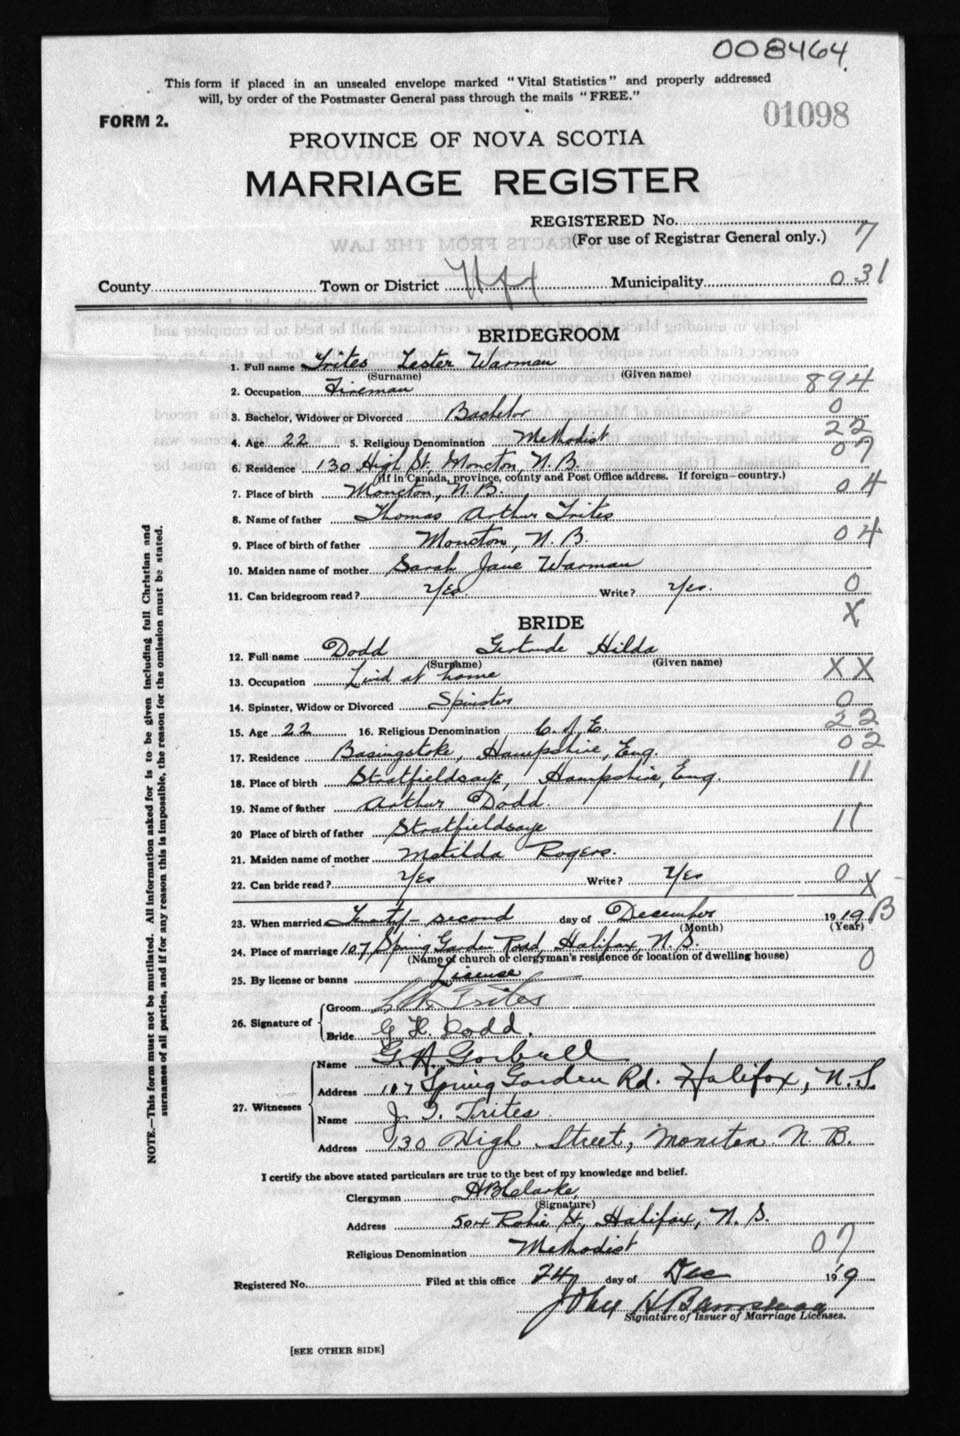 008464
This form if placed in an unsealed envelope marked "Vital Statistics" and properly addressed
will, by order of the Postmaster General pass through the mails "FREE."
FORM 2.
01098
PROVINCE OF NOVA SCOTIA
MARRIAGE REGISTER
REGISTERED No.
(For use of Registrar General only.) 7
County Town or District Hfx Municipality 031
BRIDEGROOM
1. Full name Trites Lester Warman
(Surname) (Given name)
2. Occupation Fireman 894
3. Bachelor, Widower or Divorced Bachelor 0
4. Age 22 5. Religious Denomination Methodist 22
6. Residence 130 High St. Moncton, N.B. 07
(If in Canada, province, county and Post Office address. If foreign—country.)
7. Place of birth Moncton, N.B. 04
8. Name of father Thomas Arthur Trites
9. Place of birth of father Moncton, N.B. 04
10. Maiden name of mother Sarah Jane Warman
11. Can bridegroom read? Yes Write? Yes. 0
BRIDE X
12. Full name Dodd Gertrude Hilda
(Surname) (Given name)
13. Occupation Lived at home XX
14. Spinster, Widow or Divorced Spinster 0
15. Age 22 16. Religious Denomination C. of E. 22
17. Residence Basingstoke, Hampshire, Eng. 02
18. Place of birth Stratfieldsaye, Hampshire, Eng. 11
19. Name of father Arthur Dodd.
20 Place of birth of father Stratfieldsaye 11
21. Maiden name of mother Matilda Rogers.
22. Can bride read? Yes Write? Yes 0 X
23. When married Twenty-second day of December 1919 B
(Month) (Year)
24. Place of marriage 107 Spring Garden Road, Halifax, N.S.
(Name of church or clergyman's residence or location of dwelling house) 0
25. By license or banns License
26. Signature of Groom L W Trites
Bride G. H. Dodd.
27. Witnesses Name G. A. Gorbell
Address 107 Spring Garden Rd. Halifax, N.S.
Name J. T. Trites
Address 130 High Street, Moncton N. B.
I certify the above stated particulars are true to the best of my knowledge and belief.
Clergyman H B Clarke
(Signature)
Address 504 Robie St, Halifax, N.S.
Religious Denomination Methodist 07
Registered No. Filed at this office 24 day of Dec 1919
John H Barnstead
Signature of Issuer of Marriage Licenses.
[SEE OTHER SIDE]
NOTE.—This form must not be mutilated. All information asked for is to be given including full Christian and
surnames of all parties, and if for any reason this is impossible, the reason for the omission must be stated.